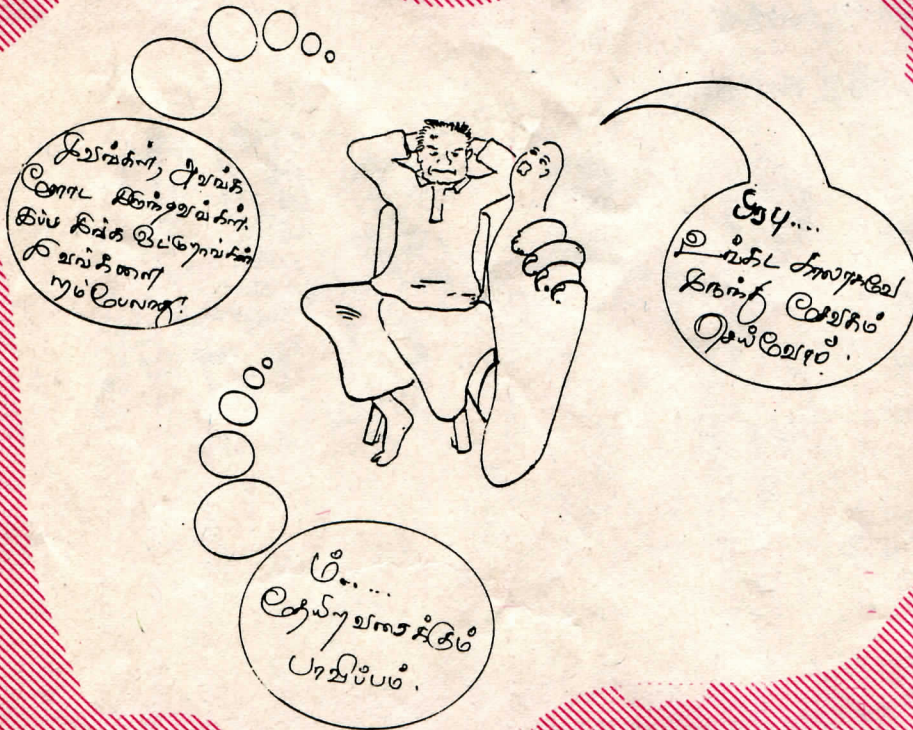 இவங்கள், அவங்க
ளோட இருந்தவங்கள்.
இப்ப இங்க ஒட்டுறாங்கள்
இவங்களை
நம்பேலாது!
பிரபு....
உங்கட காலாகவே
இருந்து சேவகம்
செய்வோம்.
ம்.....
தேயிறவரைக்கும்
பாவிப்பம்.